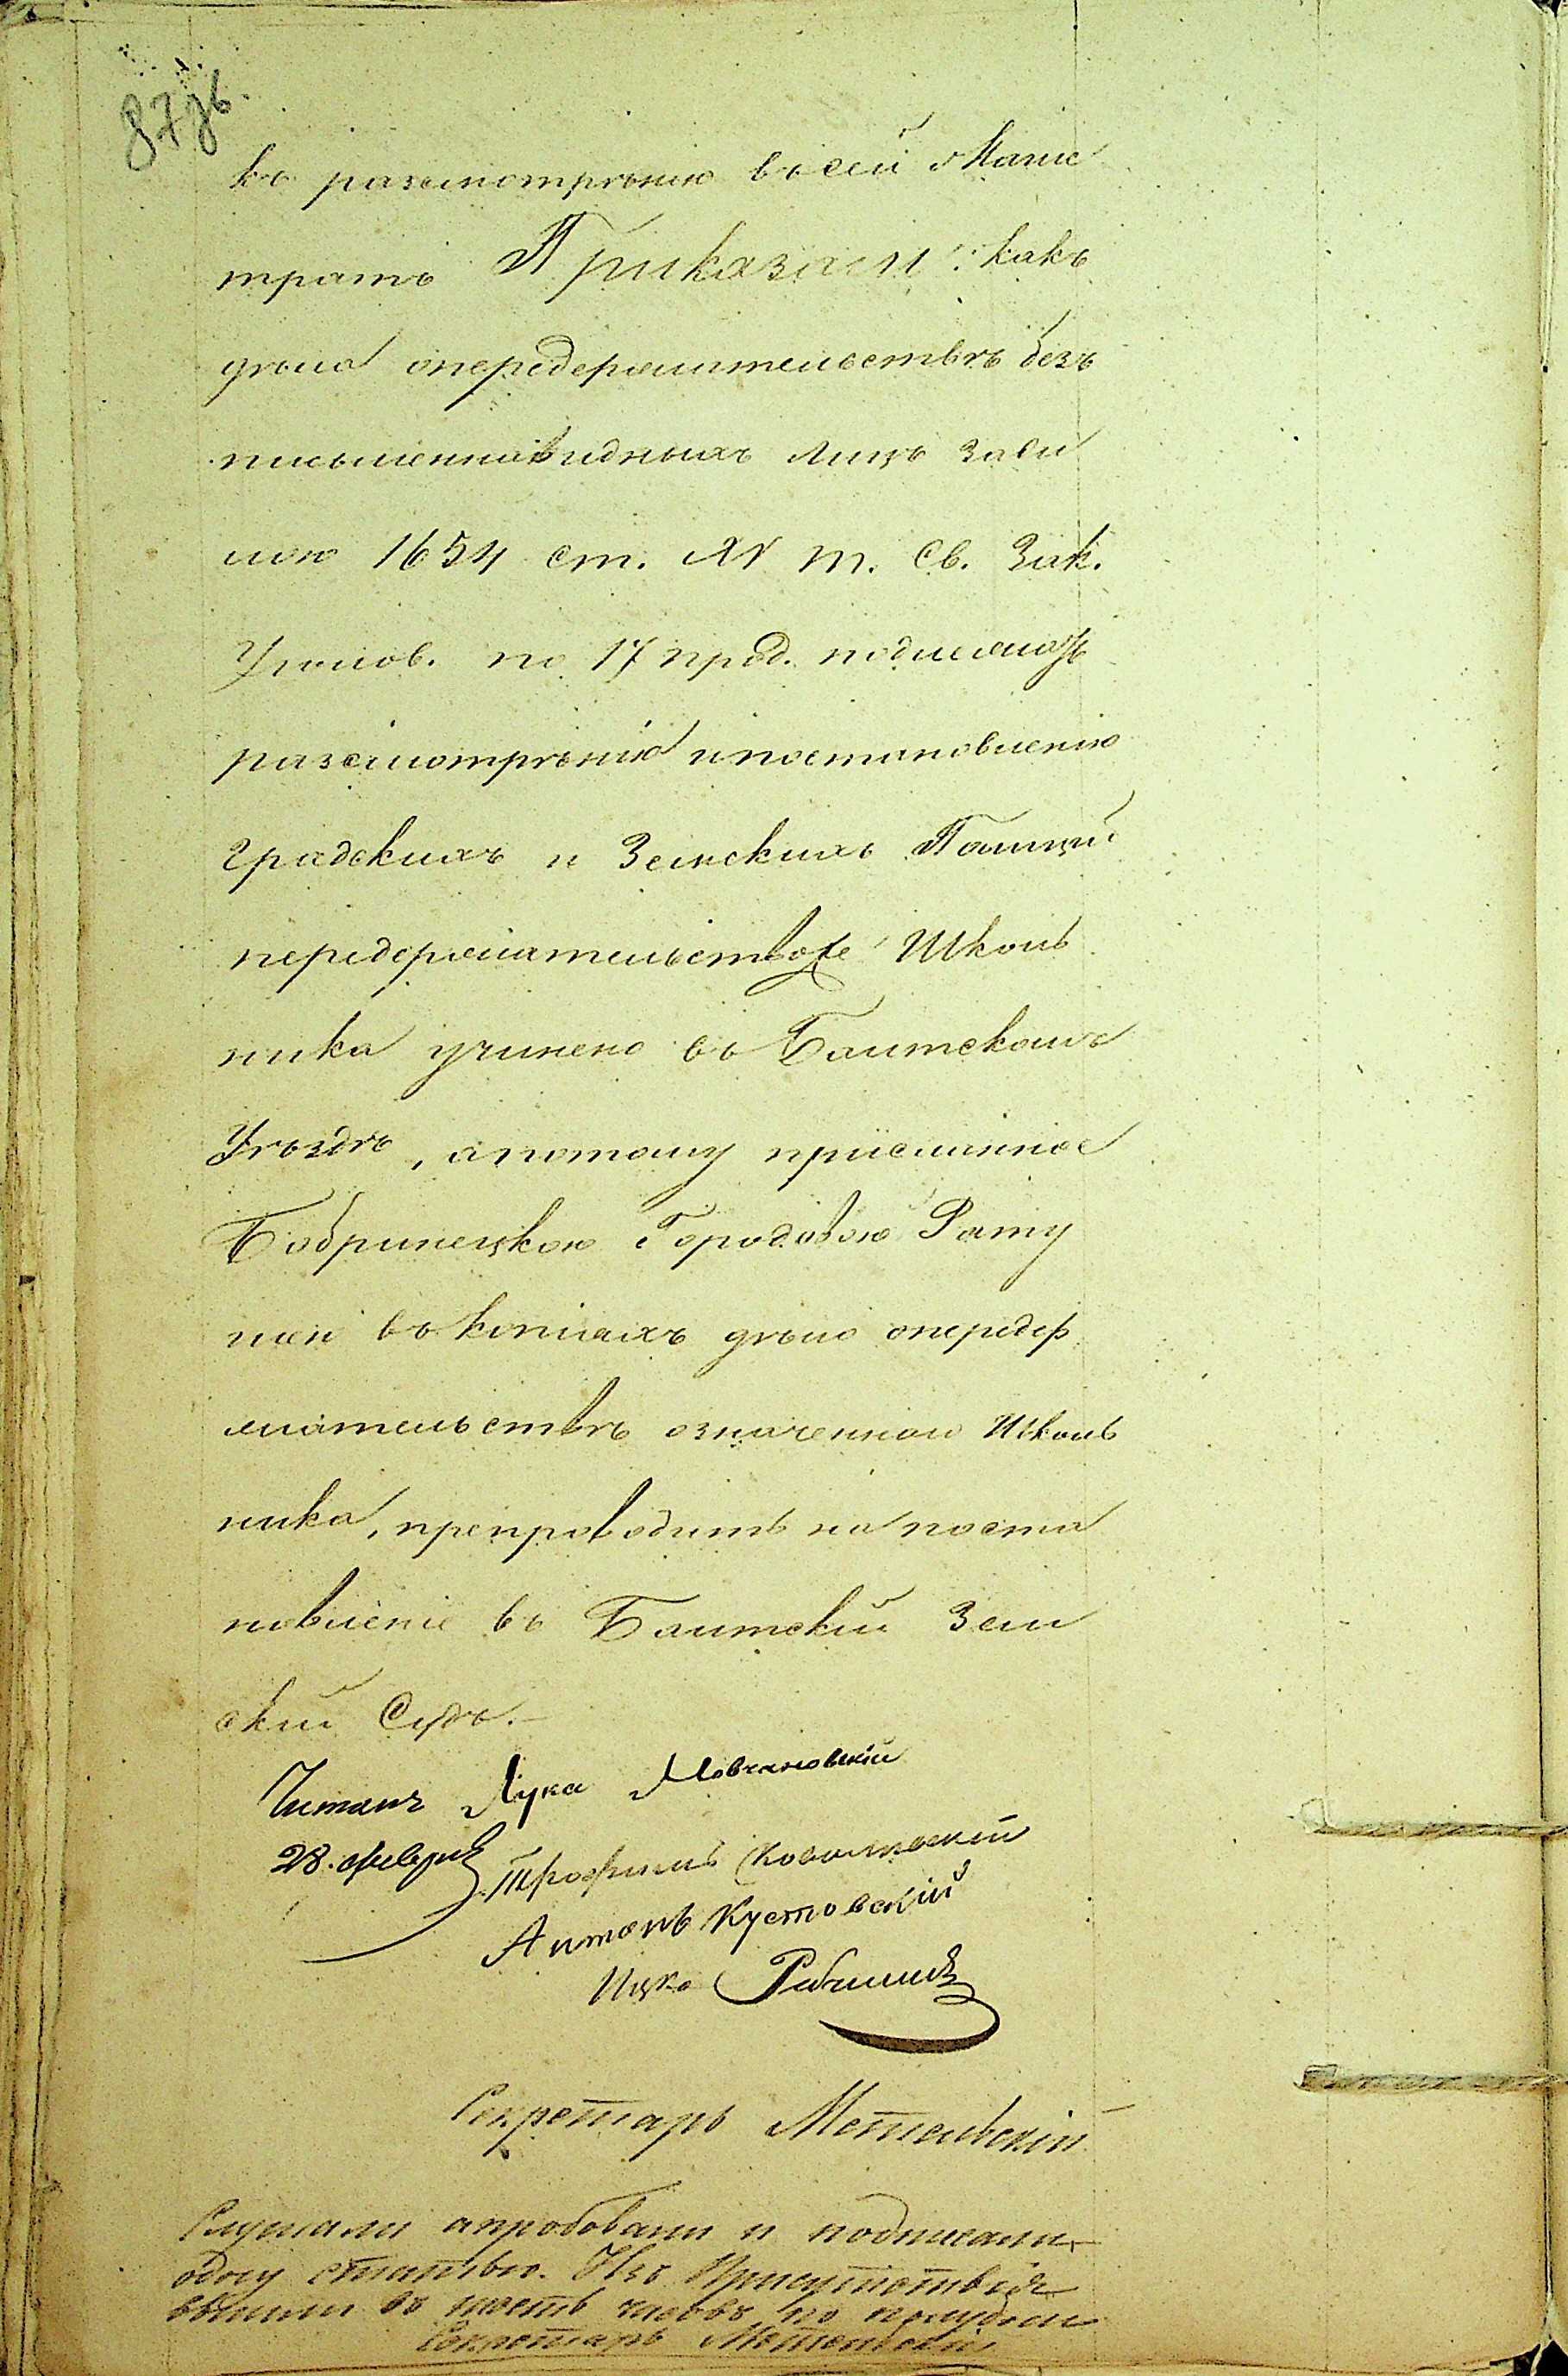 87об.
къ разсмотрѣнію въ сей Магис
тратъ Приказали: какъ
дѣла опередержительствѣ безъ
письменновидныхъ лицъ заси
лою 1654 ст. XV т. Св. Зак.
Уголов. по 17 прод. подлежатъ
разсмотрѣнію ипостановленію
Градскихъ и Земскихъ Полицій
передержательствоже Школь
ника учинено въ Балтскомъ
Уѣздѣ, апотому присланное
Бобринецкою Городовою Рату
шею въ копіяхъ дѣло опередер
жательствѣ означеннаго Школь
ника, препроводить на поста
новленіе въ Балтскій Зем
скій Судъ.—
Читалъ Лука Мовчановскій
28. февраля Трофимъ Ковалевскій
Антонъ Кустовскій
Ицко
Секретарь Метельскій
Слушали апробовали и подписали
одну статью. Изъ Присутствія
вышли въ шесть часовъ по полудни
Секретарь Метельскій